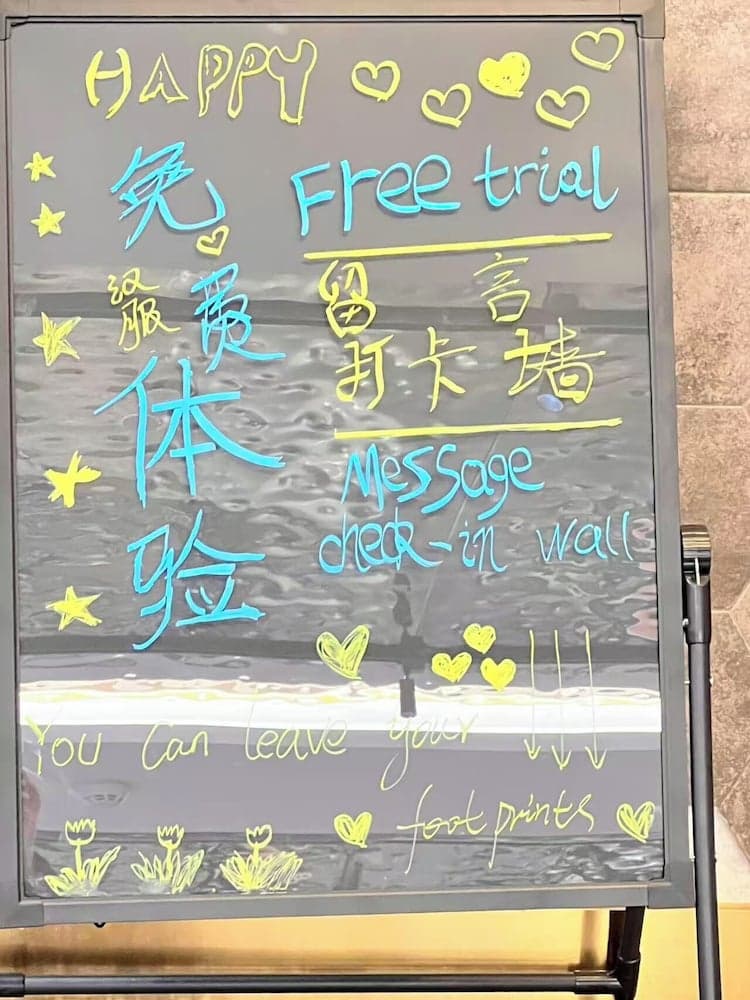 HAPPY
免费体验
汉服
Free trial
留言
打卡墙
Message
check-in wall
You can leave your
footprints